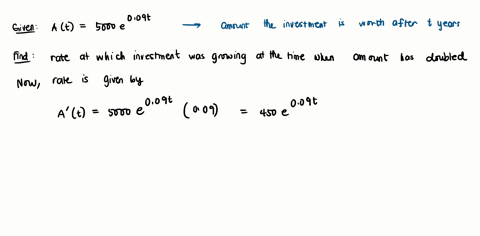 Given: A(t) = 5000 e^0.09t → amount the investment is worth after t years
Find: rate at which investment was growing at the time when amount has doubled
Now, rate is given by
A'(t) = 5000 e^0.09t (0.09) = 450 e^0.09t